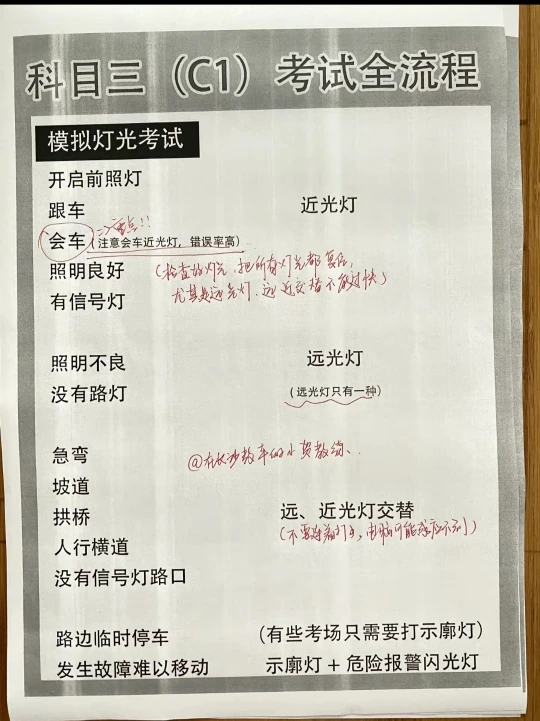 科目三（C1）考试全流程
模拟灯光考试
开启前照灯
跟车 近光灯
会车（注意会车近光灯，错误率高）
重点!!
照明良好（检查好灯光，把所有灯光都复位，
有信号灯 尤其是远光灯、远近交替不能过快）
照明不良 远光灯
没有路灯 （远光灯只有一种）
急弯 @在长沙教车的小贺教练、
坡道
拱桥 远、近光灯交替
人行横道 （不要连着打多，电脑可能感应不到）
没有信号灯路口
路边临时停车 （有些考场只需要打示廓灯）
发生故障难以移动 示廓灯＋危险报警闪光灯